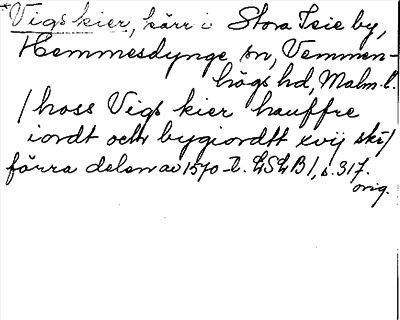 *Vigs kier, kärr i Stora Isie by,
Hemmesdynge sn, Vemmen-
högs hd, Malm. l.
/hoss Vigs kier hauffre
iordt och bygiordtt xvij ski/
förra delen av 1570-t. LSLB1, s. 317.
orig.